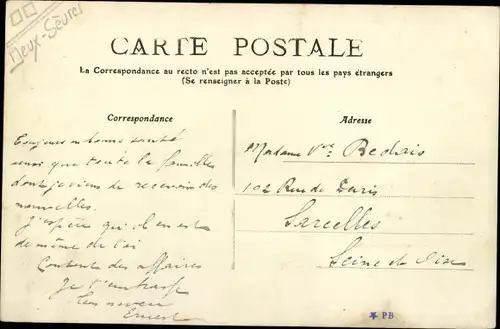 Deux-Sèvres
CARTE POSTALE
La Correspondance au recto n'est pas acceptée par tous les pays étrangers
(Se renseigner à la Poste)
Correspondance
Adresse
Toujours en bonne santé
ainsi que toute la familles
dont je viens de recevoir des
nouvelles.
J'espère qu'il en est
de même de toi
Content des affaires
Je t'embrasse
Ton neveu
Ernest
Madame Vve Bedais
102 Rue de Paris
Sarcelles
Seine et Oise
★ PB